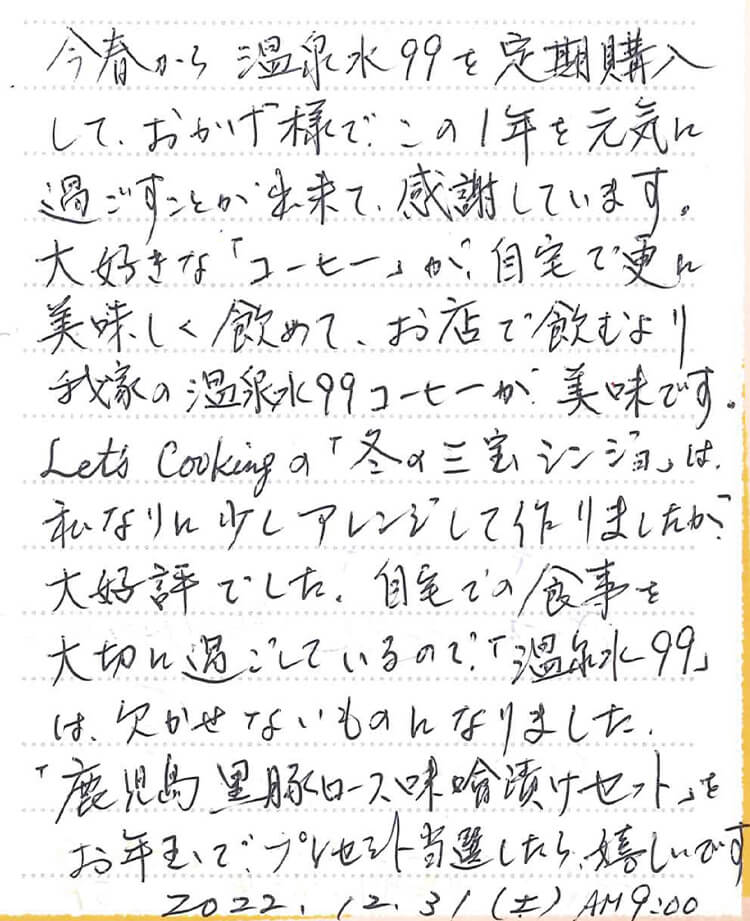 今春から 温泉水99を定期購入
して、おかげ様で、この1年を元気に
過ごすことが出来て、感謝しています。
大好きな「コーヒー」が、自宅で更に
美味しく飲めて、お店で飲むより
我家の温泉水99コーヒーが美味です。
Let's Cookingの「冬の三宝シンジョ」は、
私なりに少しアレンジして作りましたが
大好評でした。自宅での食事を
大切に過ごしているので、「温泉水99」
は、欠かせないものになりました。
「鹿児島黒豚ロース味噌漬けセット」を
お年玉で、プレゼント当選したら、嬉しいです
2022.12.31(土)AM9:00